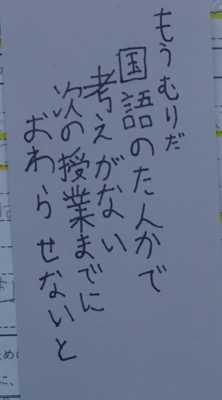 もうむりだ
国語のた人かで
考えがない
次の授業までに
おわらせないと